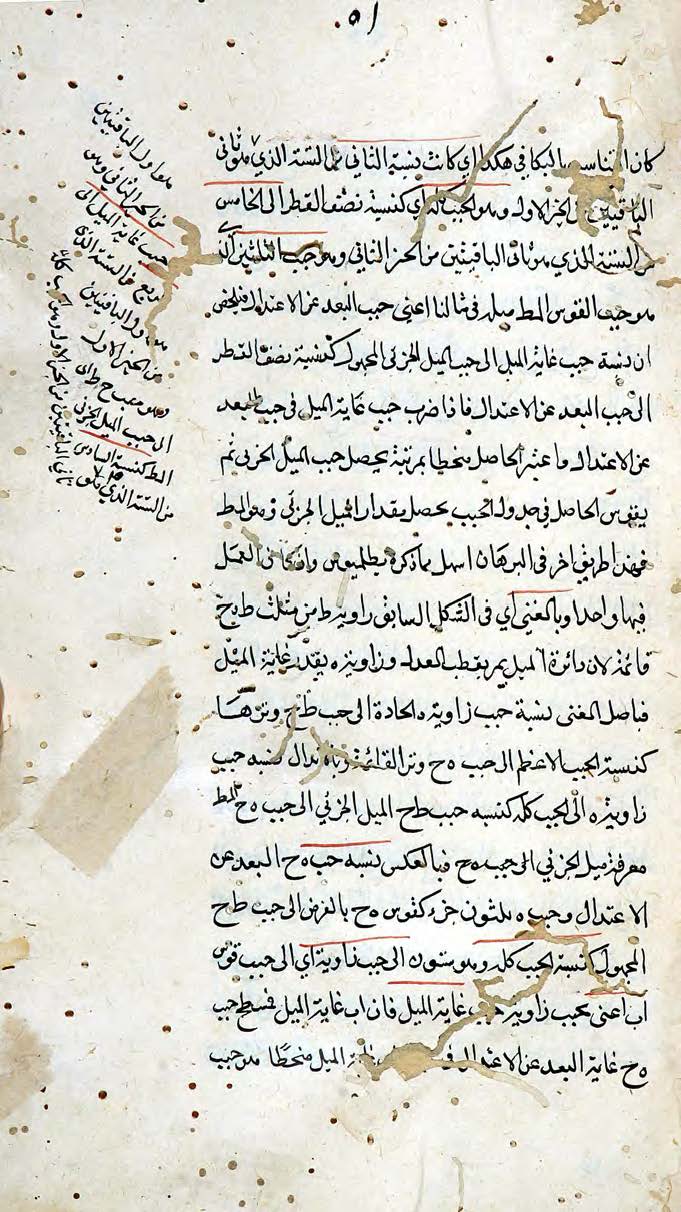 ٥١
كان التناسب بالتكافى هكذا اى كانت نسبة الثانى من الستة الذى هو ثانى
الباقيتين من الجزء الاول وهو الجيب كله اى كنسبة نصف القطر الى الخامس
من الستة الذى هو ثانى الباقيتين من الجزء الثانى وهو جيب الثلثين
هو جيب القوس المط ميله فى مثالنا اعنى جيب البعد عن الاعتدال فتلخص
ان نسبة جيب غاية الميل الى جيب الميل الجزئى المجهول كنسبة نصف القطر
الى جيب البعد عن الاعتدال فاذا ضرب جيب غاية الميل فى جيب البعد
عن الاعتدال واعتبر الحاصل منحطا بمرتبة يحصل جيب الميل الجزئى ثم
يقوس الحاصل فى جدول الجيب يحصل مقدار الميل الجزئى وهو المط
فهذا طريق اخر فى البرهان اسهل مما ذكره بطلميوس وان كان العمل
فيها واحدا وبالمغنى اى فى الشكل السابق زاوية ط من مثلث ط ه ح
قائمة لان دائرة الميل يمر بقطب المعدل وزاوية ه بقدر غاية الميل
فباصل المغنى نسبة جيب زاوية ه الحادة الى جيب ط ح وترها
كنسبة الجيب الاعظم الى جيب ه ح وتر القائمة نسبة جيب
زاوية ه الى الجيب كله كنسبة جيب ط ح الميل الجزئى الى جيب ه ح المط
معرفة ميل الجزئى الى جيب ه ح فبالعكس نسبة جيب ه ح البعد عن
الاعتدال وجيب ه ثلثون جزء كقوس ه ح بالفرض الى جيب ط ح
المجهول كنسبة الجيب كله وهو ستون الى جيب زاوية اى الى جيب قوس
اب اعنى بجيب زاوية جيب غاية الميل فان اب غاية الميل فسطح جيب
ه ح غاية البعد عن الاعتدال غاية الميل منحطا هو جيب
هو اول الباقيتين
من الجزء الثانى وهو
جيب غاية الميل الى
الرابع من الستة الذى
هو اول الباقيتين
من الجزء الاول
وهو جيب ح ط اى
الى جيب الميل الجزئى
المط كنسبة السادس
من الستة الذى هو
ثانى الباقيتين من الجزء الاول وهو الجيب كله